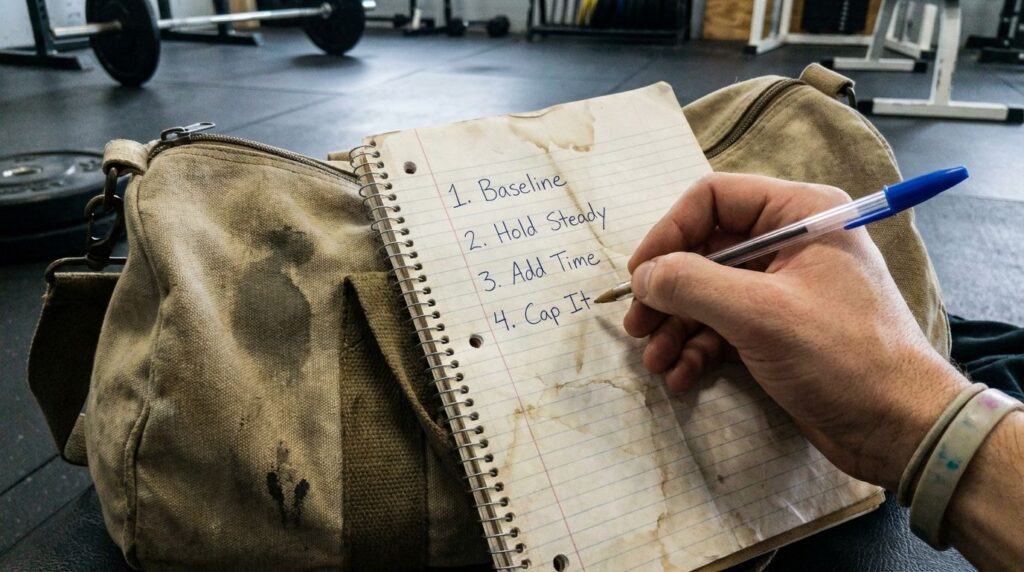 1. Baseline
2. Hold Steady
3. Add Time
4. Cap It